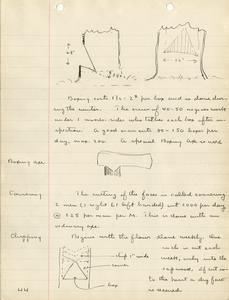 Boxing costs 1½ - 2¢ per box and is done during
the winter. The crew of 40-50 negroes work
under 1 woods-rider who tallies each box after in-
spection. A good man cuts 80 - 150 boxes per
day, max. 200. A special Boxing Axe is used
Boxing axe
Cornering
The cutting of the faces is called cornering
2 men (1 right & 1 left handed) cut 1000 per day
@ 1.25 per man per M. This is done with an
ordinary axe.
Chipping
Begins with the flow & done weekly. One
inch is cut each
week, only into the
sapwood. If cut in-
to the heart a dry face
is caused
chip 1" wide
corner
box
44